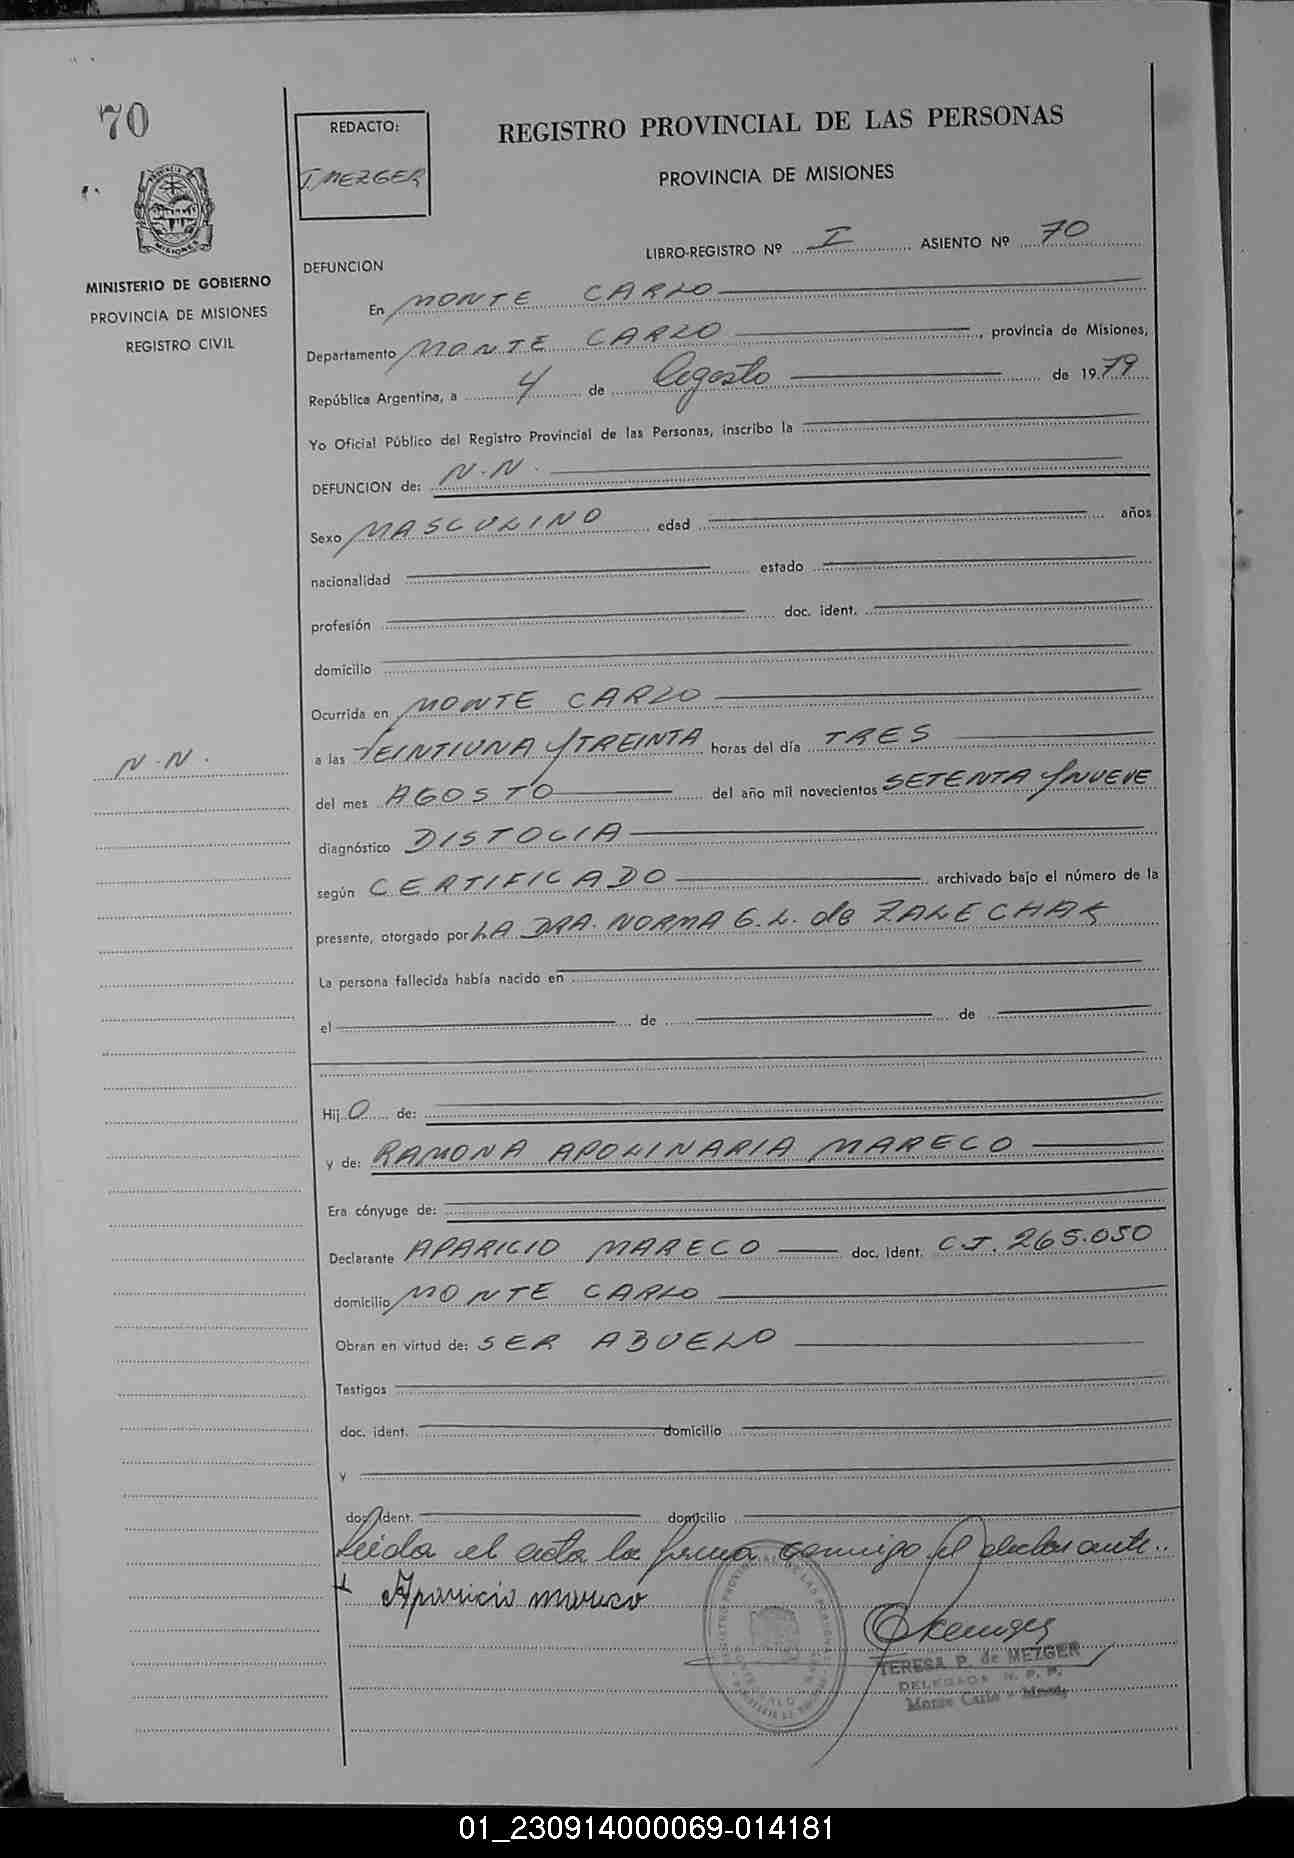 70
REDACTO:
T. MEZGER
REGISTRO PROVINCIAL DE LAS PERSONAS
PROVINCIA DE MISIONES
MISIONES
MINISTERIO DE GOBIERNO
PROVINCIA DE MISIONES
REGISTRO CIVIL
LIBRO-REGISTRO Nº I ASIENTO Nº 70
DEFUNCION
En MONTE CARLO
Departamento MONTE CARLO, provincia de Misiones,
República Argentina, a 4 de Agosto de 1979
Yo Oficial Público del Registro Provincial de las Personas, inscribo la
DEFUNCION de: N.N.
Sexo MASCULINO edad años
nacionalidad estado
profesión doc. ident.
domicilio
Ocurrida en MONTE CARLO
N.N.
a las VEINTIUNA Y TREINTA horas del día TRES
del mes AGOSTO del año mil novecientos SETENTA Y NUEVE
diagnóstico DISTOCIA
según CERTIFICADO archivado bajo el número de la
presente, otorgado por LA DRA. NORMA G. L. de ZALECHAK
La persona fallecida había nacido en
el de de
Hij O de:
y de: RAMONA APOLINARIA MARECO
Era cónyuge de:
Declarante APARICIO MARECO doc. ident. C.I. 265.050
domicilio MONTE CARLO
Obran en virtud de: SER ABUELO
Testigos
doc. ident. domicilio
y
doc. ident. domicilio
Leida el acta la firma conmigo el declarante..
Aparicio mareco
TERESA P. de MEZGER
DELEGADA R. P. P.
Monte Carlo - Mnes.
01_230914000069-014181